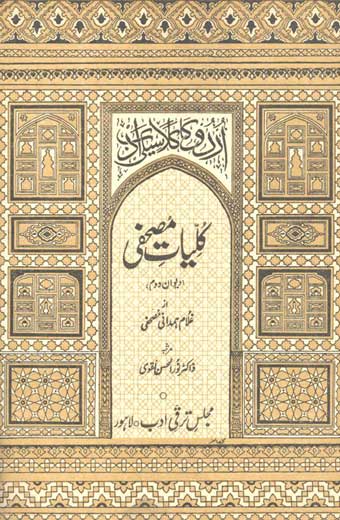 اردو کا کلاسیکی ادب
کلیاتِ مصحفی
(دیوان دوم)
از
غلام ہمدانی مصحفی
مرتبہ
ڈاکٹر نور الحسن نقوی
مجلس ترقی ادب ○ لاہور